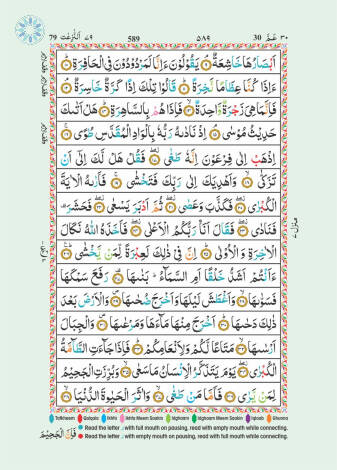 79 اَلنّٰزِعٰت ٧٩
589
٥٨٩
30 عَمَّ ٣٠
اَبْصَارُهَا خَاشِعَةٌ ۘ يَقُوْلُوْنَ ءَاِنَّا لَمَرْدُوْدُوْنَ فِى الْحَافِرَةِ
ءَاِذَا كُنَّا عِظَامًا نَّخِرَةً قَالُوْا تِلْكَ اِذًا كَرَّةٌ خَاسِرَةٌ
فَاِنَّمَا هِىَ زَجْرَةٌ وَّاحِدَةٌ فَاِذَا هُمْ بِالسَّاهِرَةِ هَلْ اَتٰٮكَ
حَدِيْثُ مُوْسٰى اِذْ نَادٰٮهُ رَبُّهٗ بِالْوَادِ الْمُقَدَّسِ طُوًى
اِذْهَبْ اِلٰى فِرْعَوْنَ اِنَّهٗ طَغٰى فَقُلْ هَلْ لَّكَ اِلٰٓى اَنْ
تَزَكّٰى وَاَهْدِيَكَ اِلٰى رَبِّكَ فَتَخْشٰى فَاَرٰٮهُ الْاٰيَةَ
الْكُبْرٰى فَكَذَّبَ وَعَصٰى ثُمَّ اَدْبَرَ يَسْعٰى فَحَشَرَ
فَنَادٰى فَقَالَ اَنَا رَبُّكُمُ الْاَعْلٰى فَاَخَذَهُ اللّٰهُ نَكَالَ
الْاٰخِرَةِ وَالْاُوْلٰى اِنَّ فِىْ ذٰلِكَ لَعِبْرَةً لِّمَنْ يَّخْشٰى
ءَاَنْتُمْ اَشَدُّ خَلْقًا اَمِ السَّمَآءُ بَنٰٮهَا رَفَعَ سَمْكَهَا
فَسَوّٰٮهَا وَاَغْطَشَ لَيْلَهَا وَاَخْرَجَ ضُحٰٮهَا وَالْاَرْضَ بَعْدَ
ذٰلِكَ دَحٰٮهَا اَخْرَجَ مِنْهَا مَآءَهَا وَمَرْعٰٮهَا وَالْجِبَالَ
اَرْسٰٮهَا مَتَاعًا لَّكُمْ وَلِاَنْعَامِكُمْ فَاِذَا جَآءَتِ الطَّآمَّةُ
الْكُبْرٰى يَوْمَ يَتَذَكَّرُ الْاِنْسَانُ مَا سَعٰى وَبُرِّزَتِ الْجَحِيْمُ
لِمَنْ يَّرٰى فَاَمَّا مَنْ طَغٰى وَاٰثَرَ الْحَيٰوةَ الدُّنْيَا
Tafkheem Qalqala Ikhfa Ikhfa Meem Saakin Idghaam Idghaam Meem Saakin Iqlaab Ghunna
Read the letter و with full mouth on pausing, read with empty mouth while connecting.
Read the letter ر with empty mouth on pausing, read with full mouth while connecting.